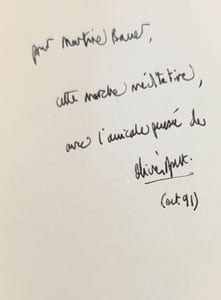 pour Martine Bauer,
cette marche méditative,
avec l'amicale pensée de
Olivier
(oct 91)